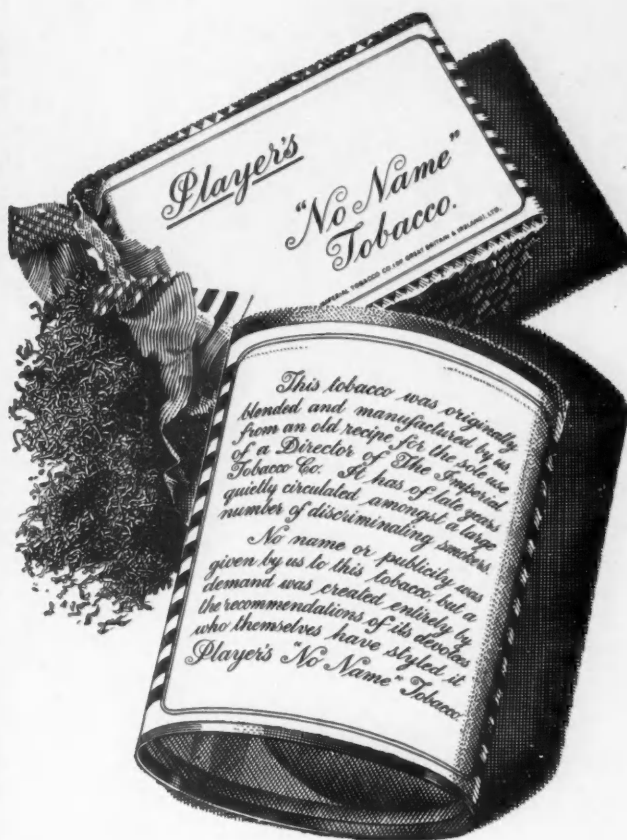 Player's
"No Name"
Tobacco.
IMPERIAL TOBACCO CO (OF GREAT BRITAIN & IRELAND), LTD.
This tobacco was originally
blended and manufactured by us,
from an old recipe for the sole use
of a Director of The Imperial
Tobacco Co. It has of late years
quietly circulated amongst a large
number of discriminating smokers.
No name or publicity was
given by us to this tobacco: but a
demand was created entirely by
the recommendations of its devotees
who themselves have styled it
Player's "No Name" Tobacco.